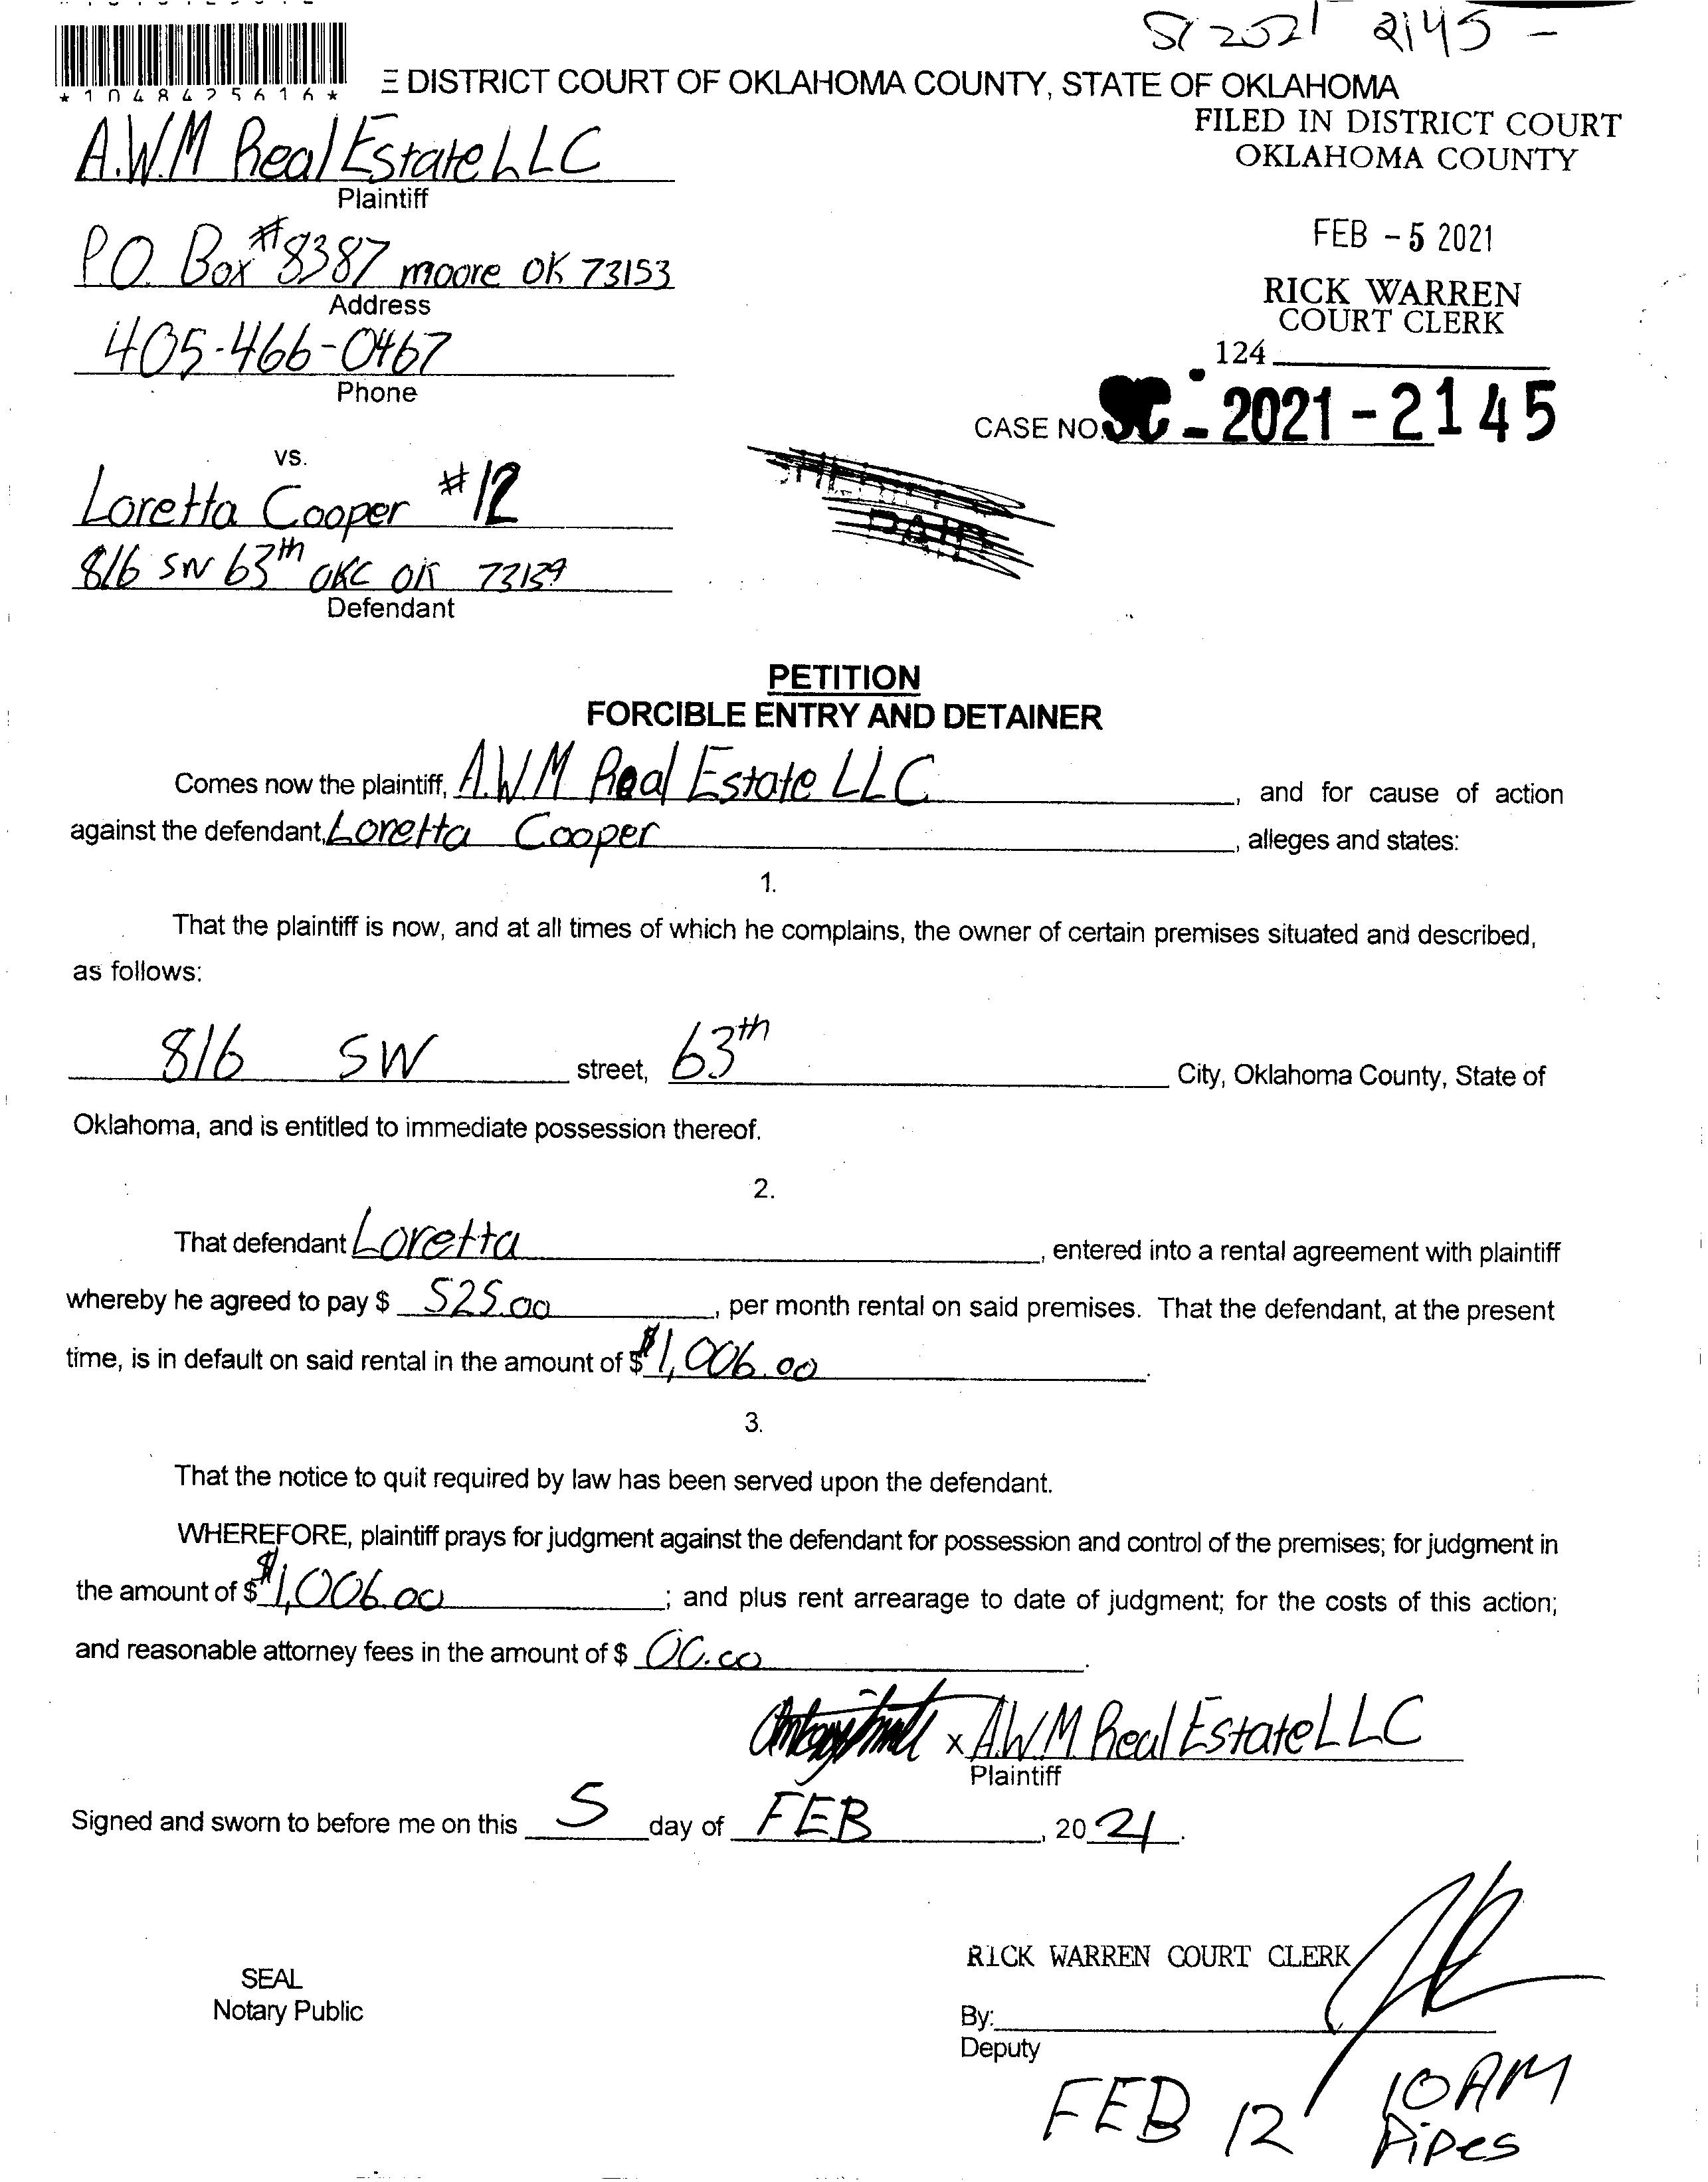 SC 2021 2145 -
*1048425616*
E DISTRICT COURT OF OKLAHOMA COUNTY, STATE OF OKLAHOMA
FILED IN DISTRICT COURT
OKLAHOMA COUNTY
A.W.M Real Estate LLC
Plaintiff
FEB -5 2021
P.O. Box #8387 moore OK 73153
Address
RICK WARREN
COURT CLERK
405-466-0467
Phone
124
CASE NO. SC - 2021 - 2145
vs.
Loretta Cooper #12
816 SW 63th OKC OK 73139
Defendant
PETITION
FORCIBLE ENTRY AND DETAINER
Comes now the plaintiff, A.W.M Real Estate LLC, and for cause of action
against the defendant, Loretta Cooper, alleges and states:
1.
That the plaintiff is now, and at all times of which he complains, the owner of certain premises situated and described,
as follows:
816 SW street, 63th City, Oklahoma County, State of
Oklahoma, and is entitled to immediate possession thereof.
2.
That defendant Loretta, entered into a rental agreement with plaintiff
whereby he agreed to pay $ 525.00, per month rental on said premises. That the defendant, at the present
time, is in default on said rental in the amount of $ $1,006.00.
3.
That the notice to quit required by law has been served upon the defendant.
WHEREFORE, plaintiff prays for judgment against the defendant for possession and control of the premises; for judgment in
the amount of $ $1,006.00; and plus rent arrearage to date of judgment; for the costs of this action;
and reasonable attorney fees in the amount of $ 00.00.
x A.W.M. Real Estate LLC
Plaintiff
Signed and sworn to before me on this 5 day of FEB, 2021.
RICK WARREN COURT CLERK
SEAL
Notary Public
By:
Deputy
FEB 12 10AM
Pipes